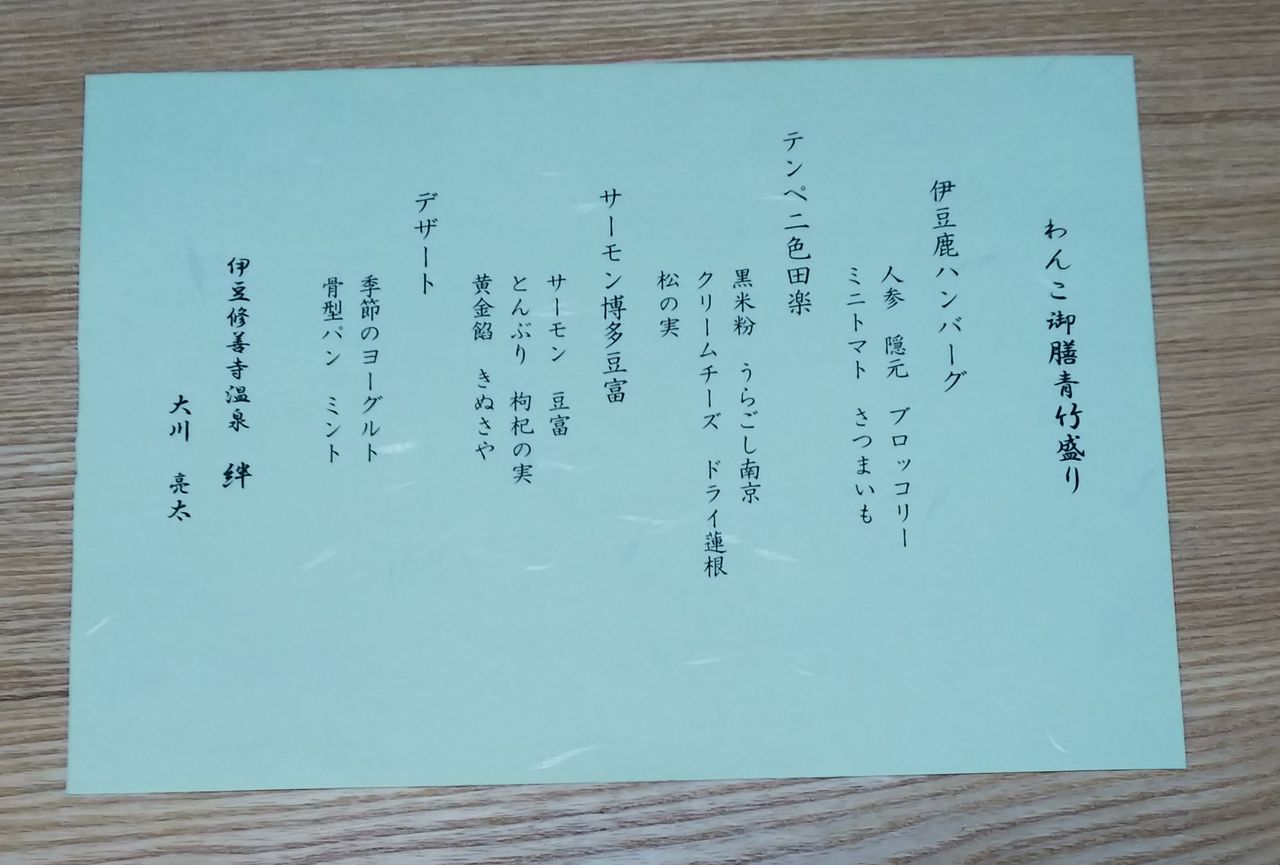 わんこ御膳青竹盛り
伊豆鹿ハンバーグ
人参　隠元　ブロッコリー
ミニトマト　さつまいも
テンペ二色田楽
黒米粉　うらごし南京
クリームチーズ　ドライ蓮根
松の実
サーモン博多豆富
サーモン　豆富
とんぶり　枸杞の実
黄金餡　きぬさや
デザート
季節のヨーグルト
骨型パン　ミント
伊豆修善寺温泉　絆
大川　亮太